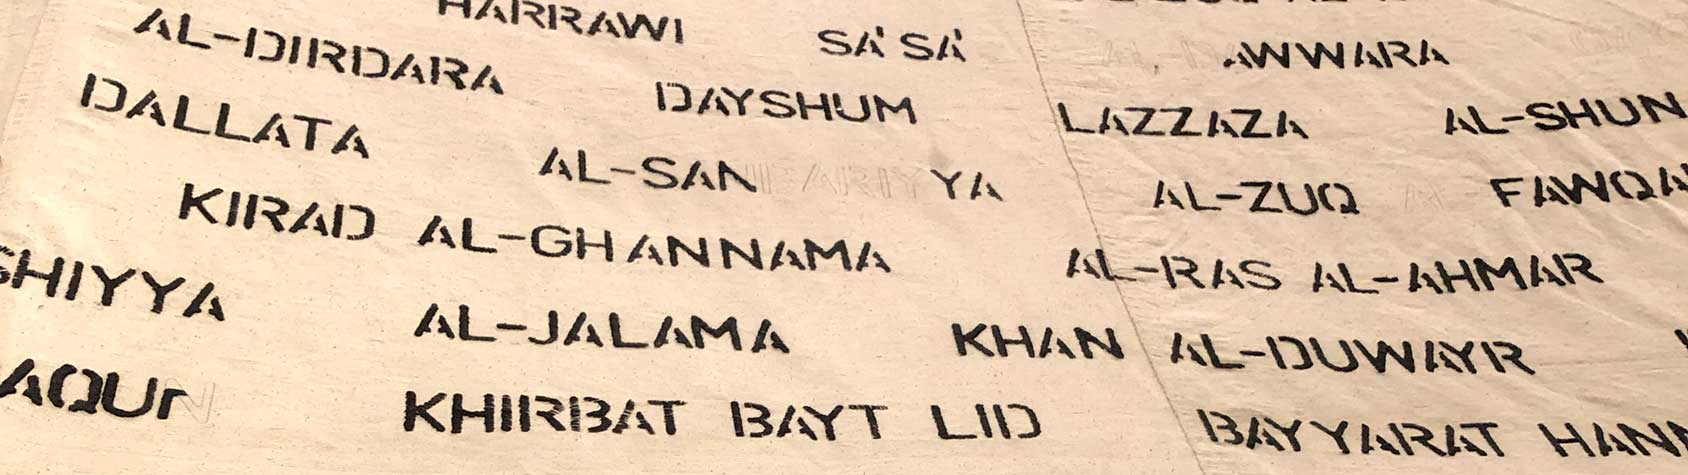 HARRAWI SA'SA' AWWARA
AL-DIRDARA DAYSHUM LAZZAZA AL-SHUN
DALLATA AL-SANBARIYYA AL-ZUQ FAWQA
KIRAD AL-GHANNAMA AL-RAS AL-AHMAR
SHIYYA AL-JALAMA KHAN AL-DUWAYR
AQUN KHIRBAT BAYT LID BAYYARAT HANN